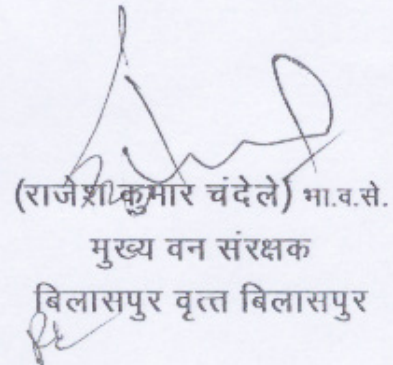 (राजेश कुमार चंदेले) भा.व.से.
मुख्य वन संरक्षक
बिलासपुर वृत्त बिलासपुर